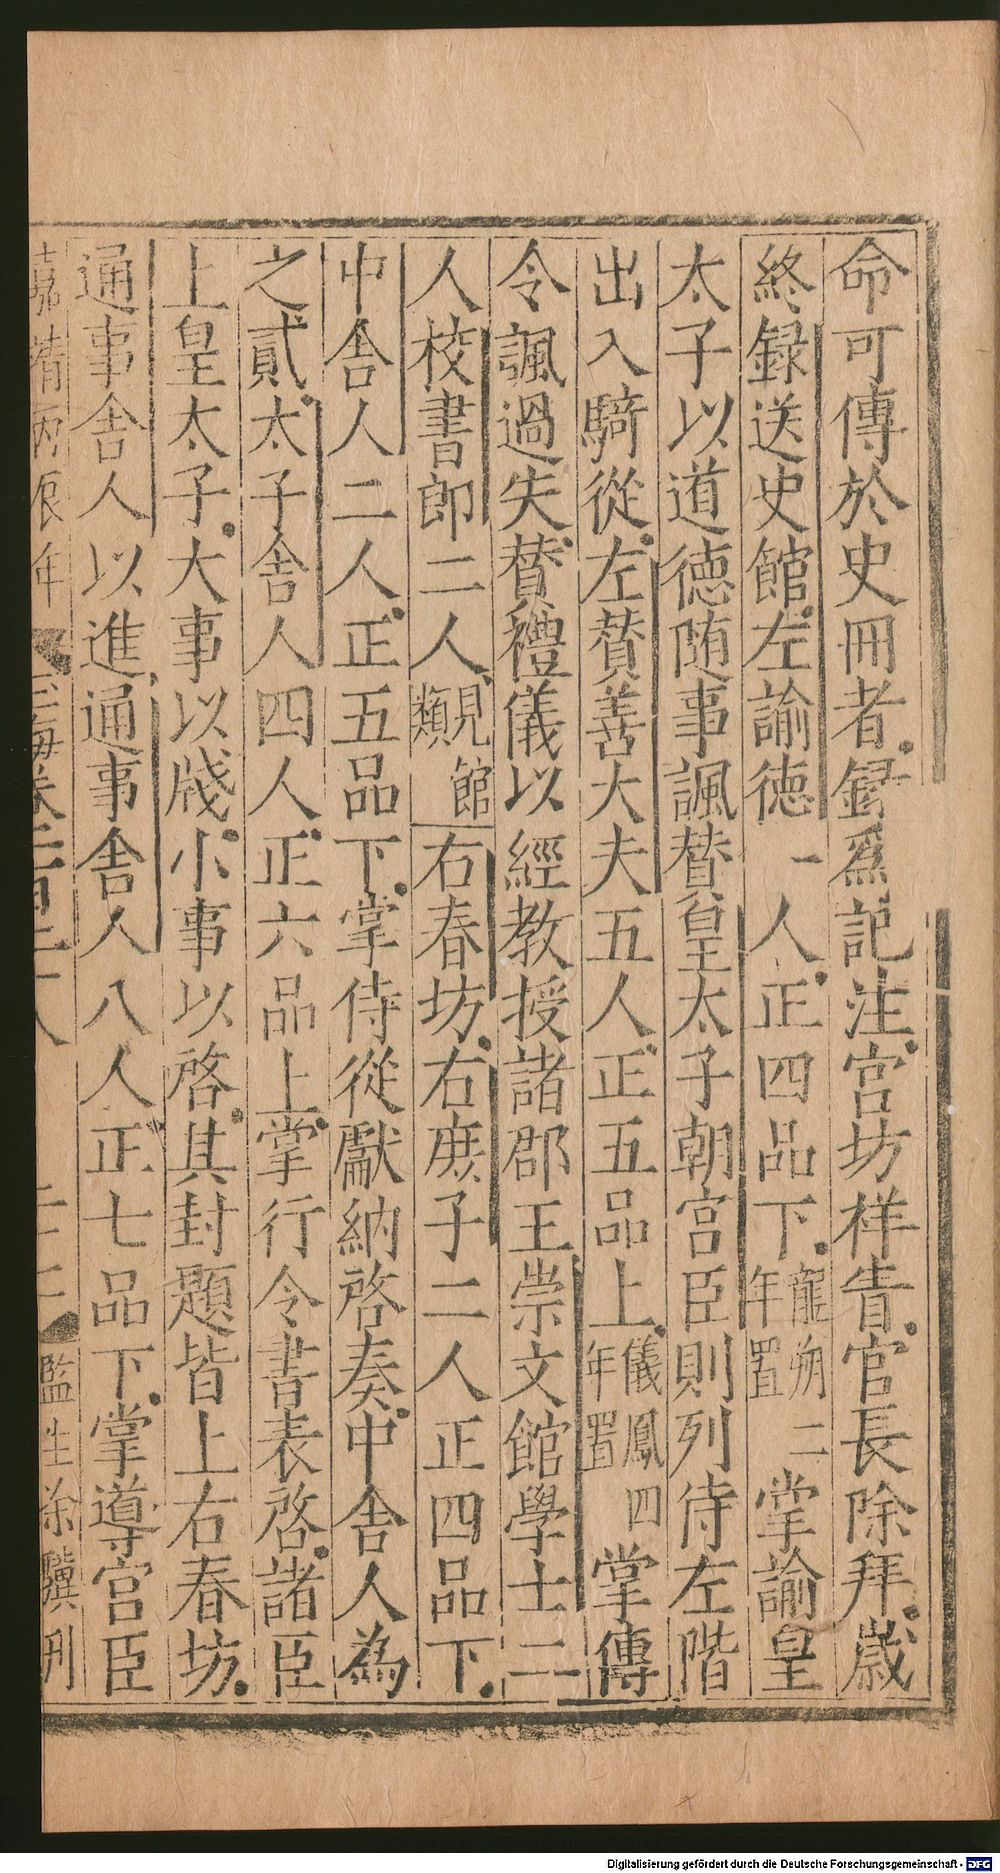 命可傳於史冊者録爲記注宫坊祥眚官長除拜歲
終録送史館左諭徳一人正四品下龍朔二年置掌諭皇
太子以道徳随事諷賛皇太子朝宫臣則列侍左階
出入騎從左賛善大夫五人正五品上儀鳳四年置掌傳
令諷過失賛禮儀以經教授諸郡王崇文館學士二
人校書郎二人見館類右春坊右庻子二人正四品下
中舎人二人正五品下掌侍從獻納啓奏中舎人為
之貳太子舎人四人正六品上掌行令書表啓諸臣
上皇太子大事以牋小事以啓其封題皆上右春坊
通事舎人以進通事舎人八人正七品下掌導宫臣
嘉靖丙辰年 玉海卷 監生徐驥刊
Digitalisierung gefördert durch die Deutsche Forschungsgemeinschaft - DFG